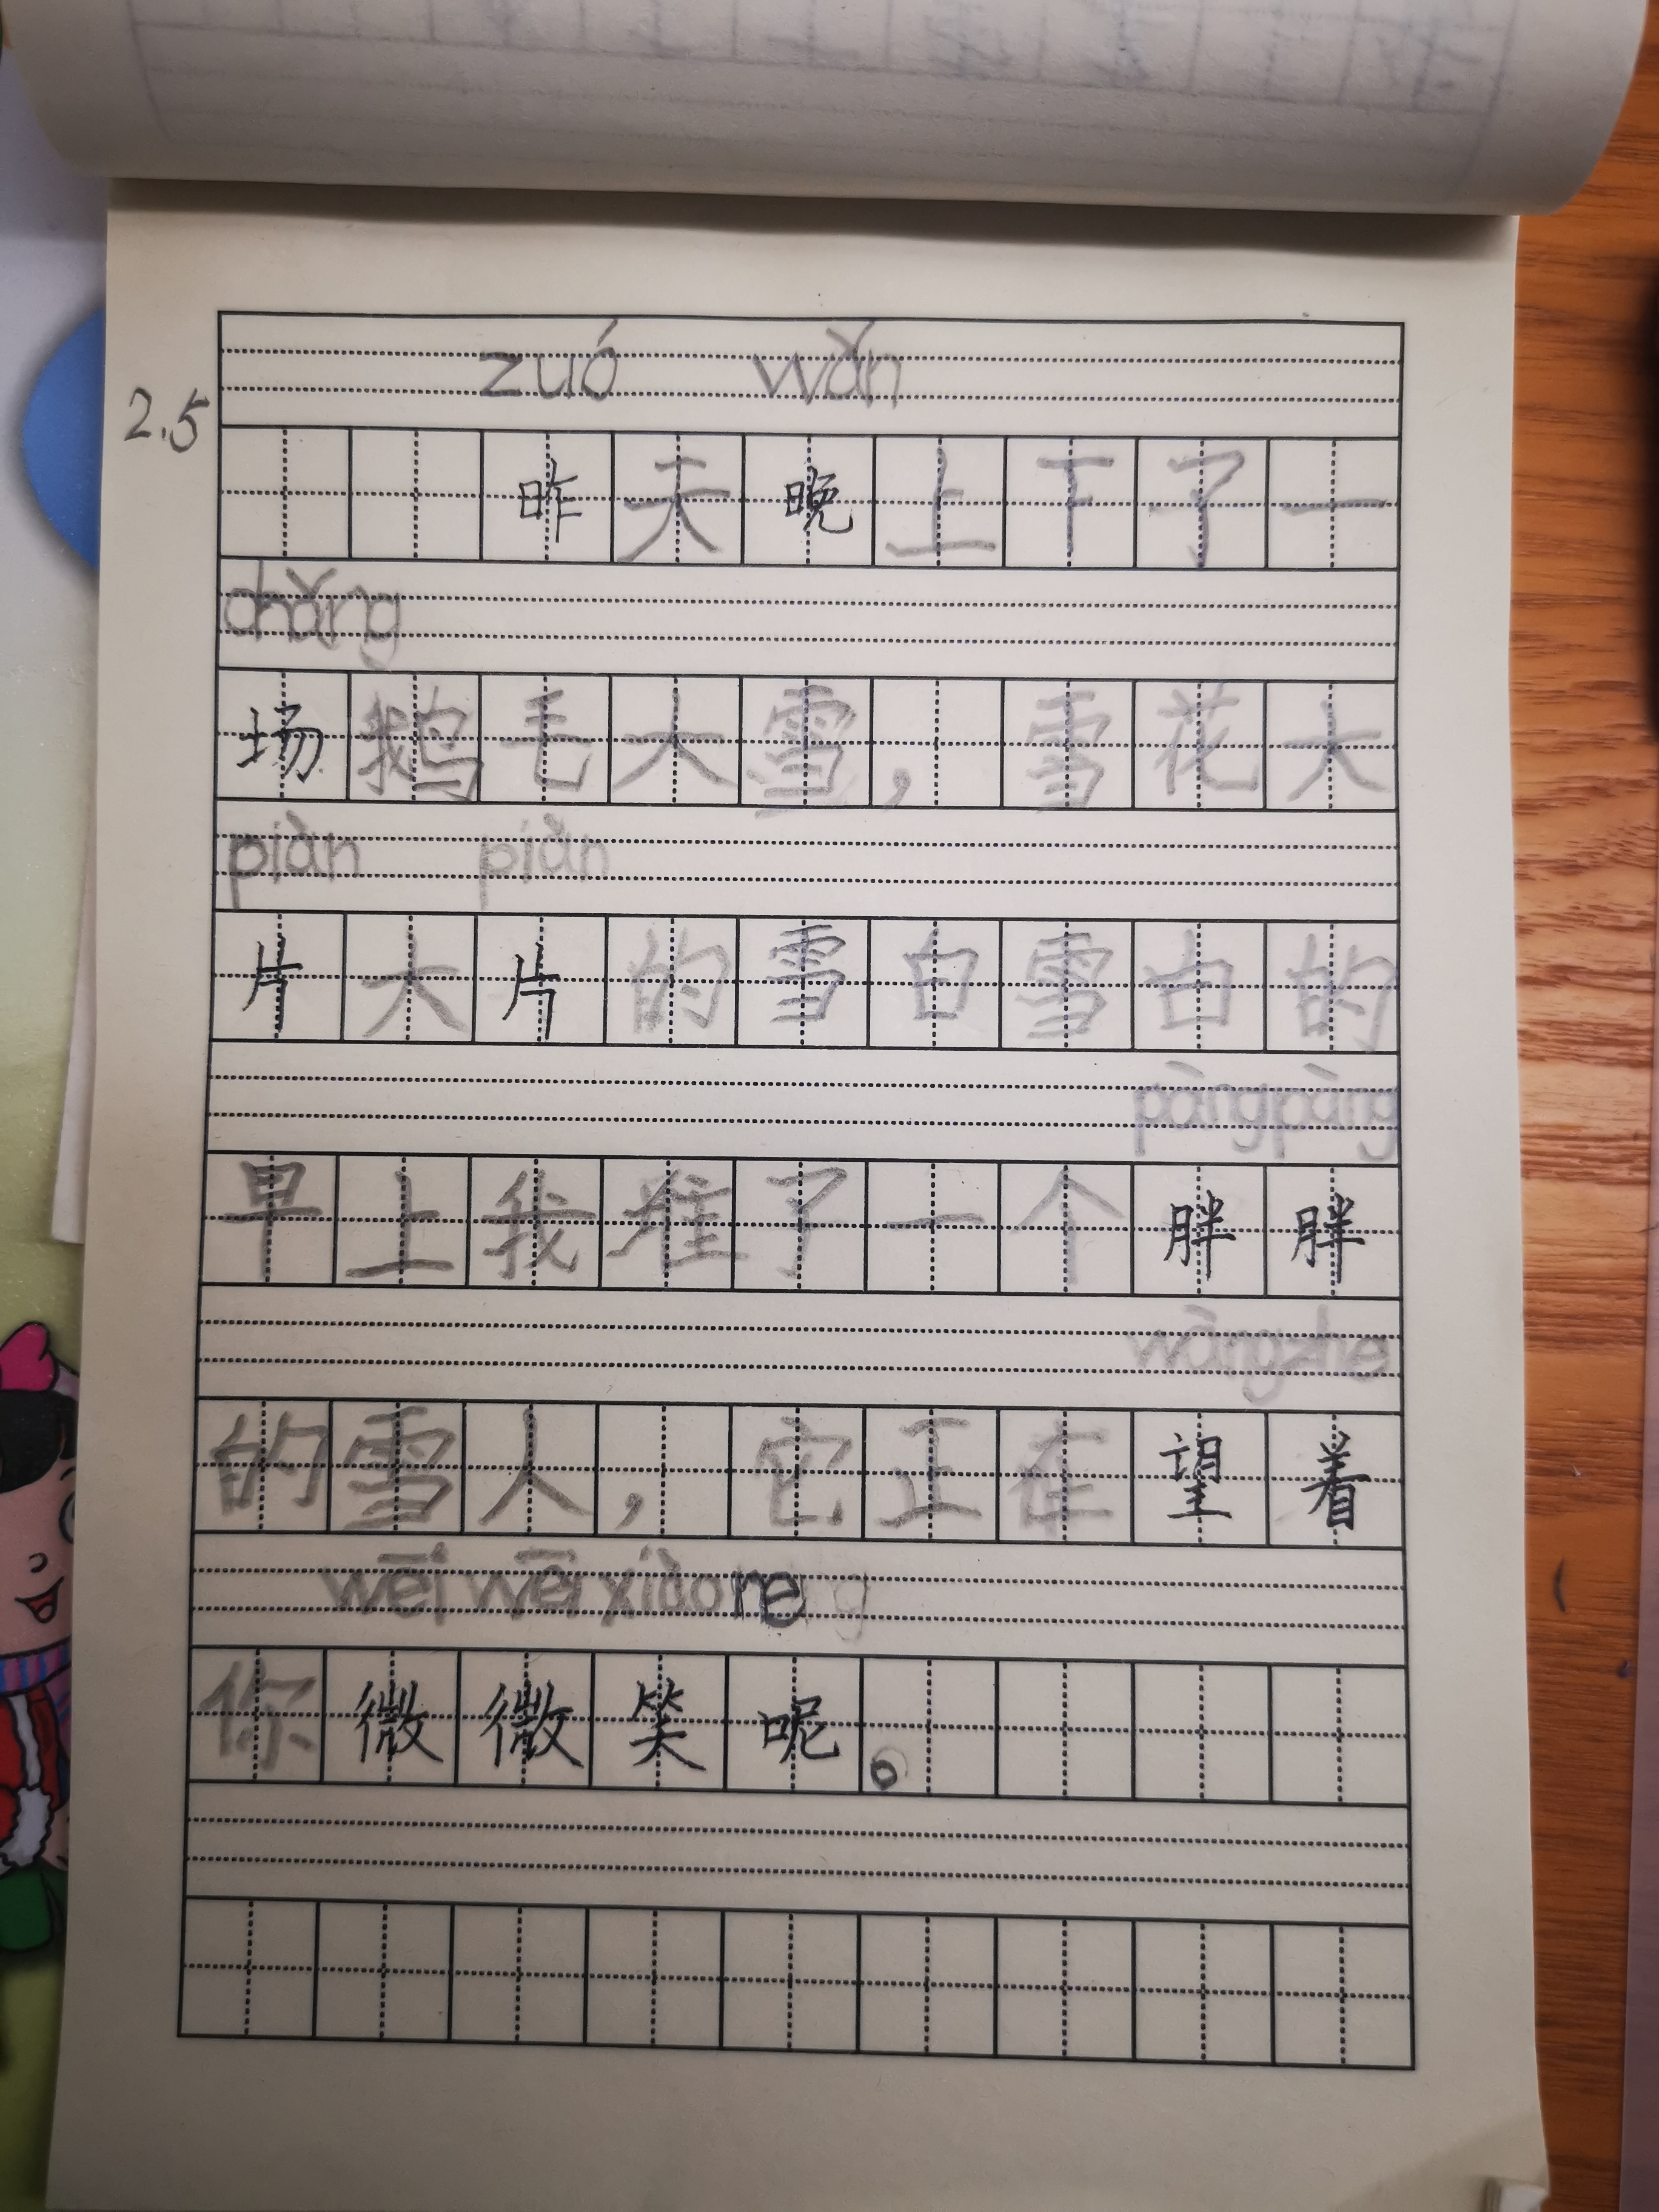 zuó wǎn
2.5
昨天晚上下了一
chǎng
场鹅毛大雪，雪花大
piàn piàn
片大片的雪白雪白的
pàng pàng
早上我堆了一个胖胖
wàng zhe
的雪人，它正在望着
wēi wēi xiào ne
你微微笑呢。